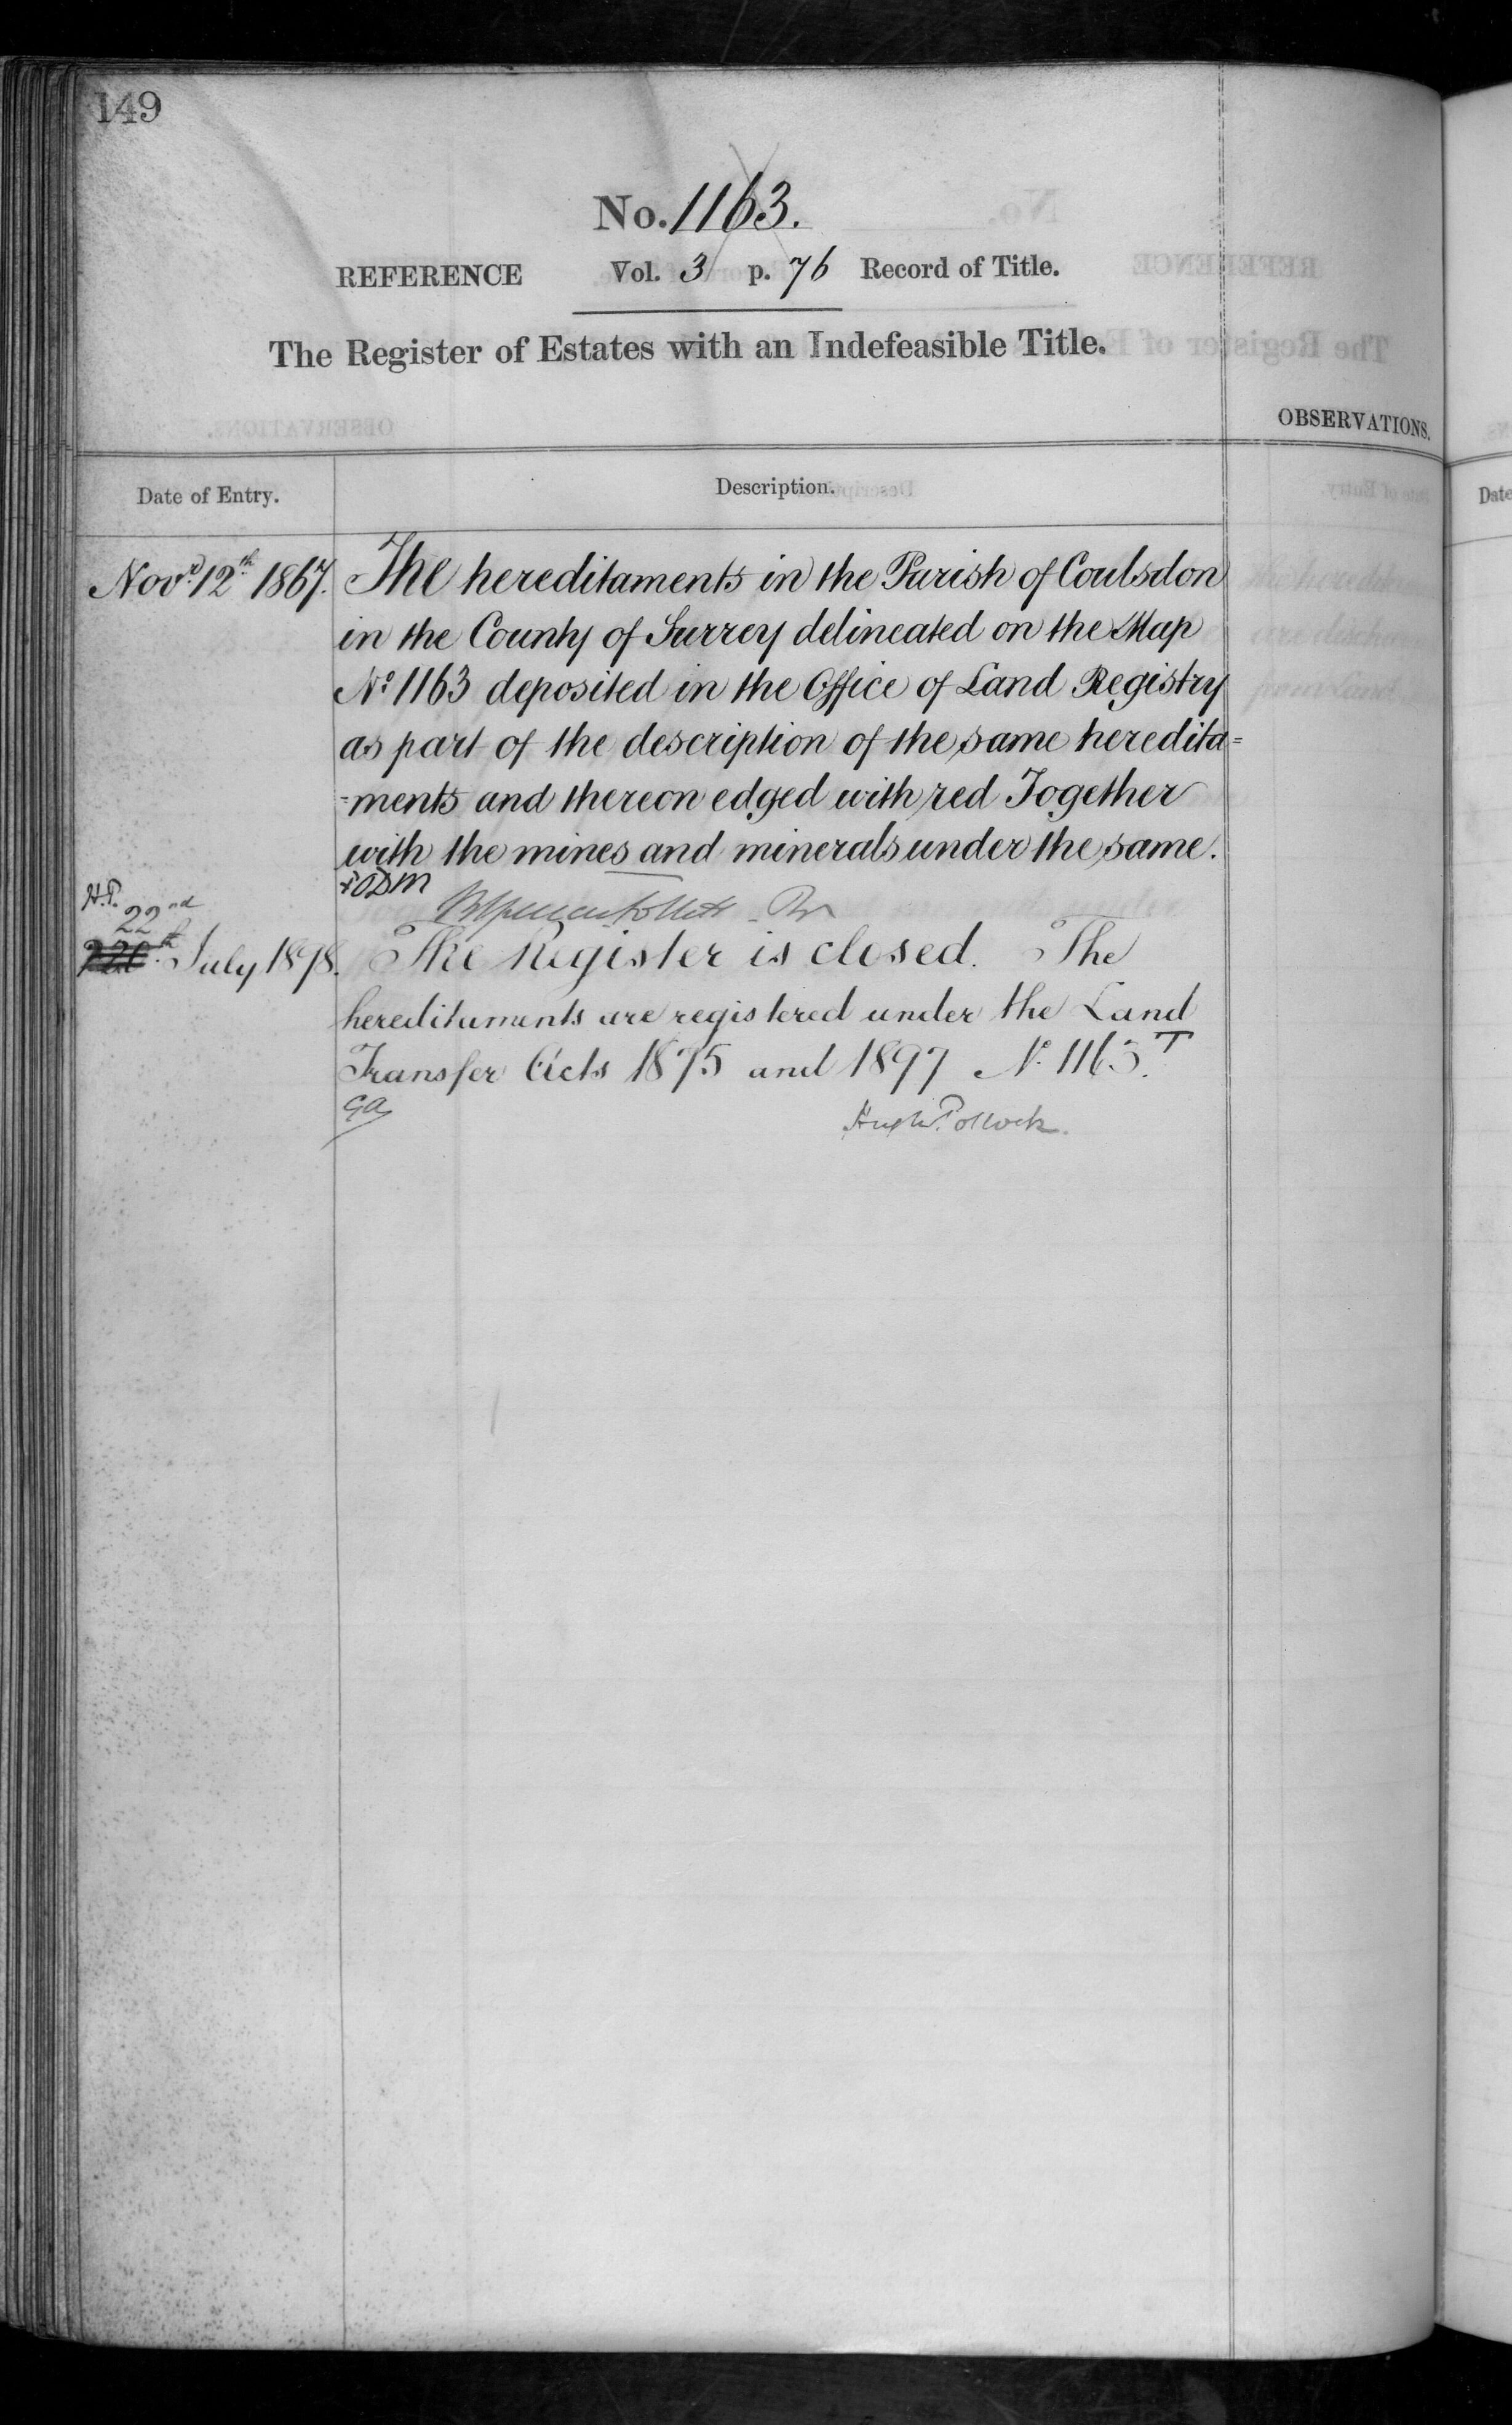 149
No. 1163.
REFERENCE Vol. 3 p. 76 Record of Title.
The Register of Estates with an Indefeasible Title.
OBSERVATIONS.
Date of Entry. Description.
Date
Novr. 12th 1867. The hereditaments in the Parish of Coulsdon
in the County of Surrey delineated on the Map
No. 1163 deposited in the Office of Land Registry
as part of the description of the same heredita=
=ments and thereon edged with red Together
with the mines and minerals under the same.
H.P.
22nd
July 1898. The Register is closed. The
hereditaments are registered under the Land
Transfer Acts 1875 and 1897 No. 1163.T
Hugh Pollock.